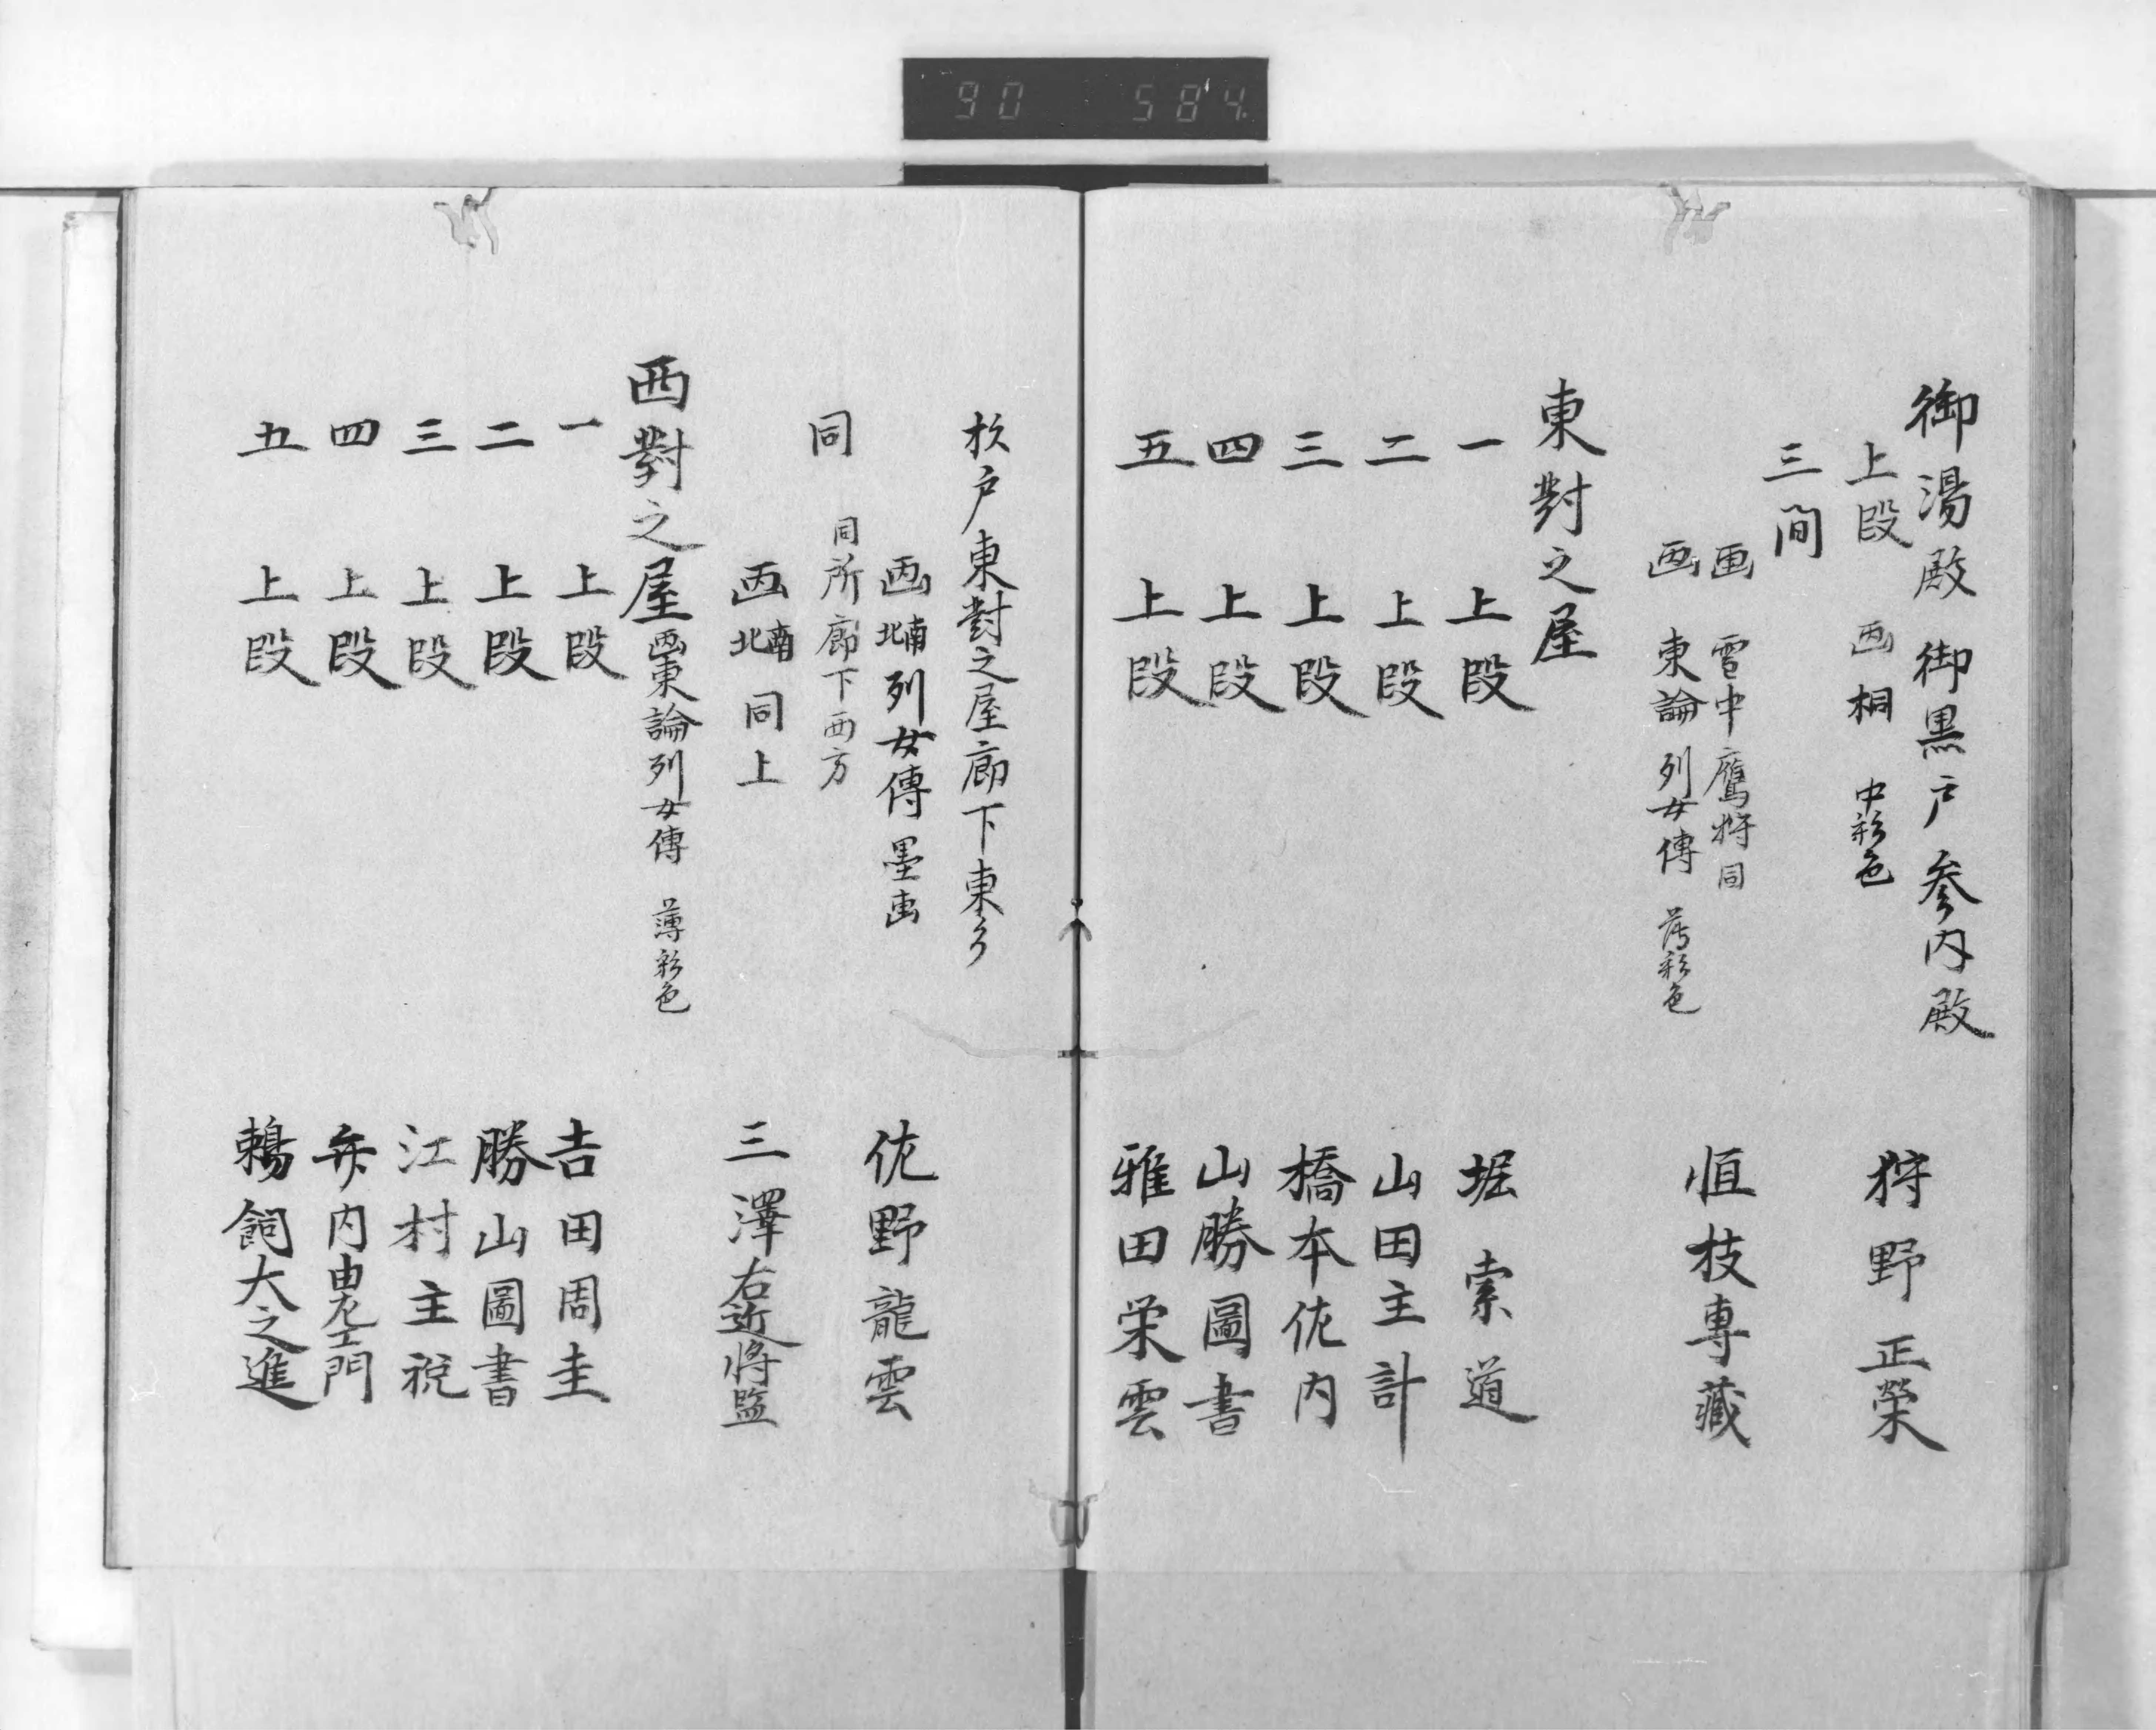 90 584
御湯殿 御黒戸 参内殿
上段 画 桐 中彩色 狩野正榮
三間
画 雪中鷹狩 同
画 東論 列女傳 薄彩色 恒枝専藏
東對之屋
一 上段 堀索道
二 上段 山田主計
三 上段 橋本佐内
四 上段 山勝圖書
五 上段 雅田栄雲
杉戸東對之屋廊下東方
画 南北 列女傳 墨画 佐野龍雲
同 同所廊下西方
画 南北 同上 三澤右近將監
西對之屋 画東論列女傳 薄彩色
一 上段 吉田周圭
二 上段 勝山圖書
三 上段 江村主税
四 上段 弁内 門
五 上段 鵜飼大之進